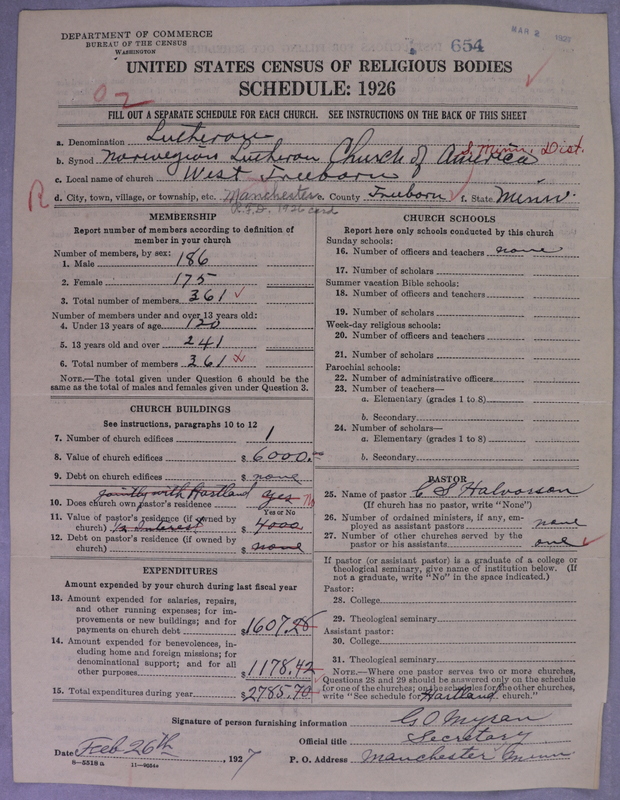 DEPARTMENT OF COMMERCE
BUREAU OF THE CENSUS
WASHINGTON
654
MAR 2 1927
UNITED STATES CENSUS OF RELIGIOUS BODIES
SCHEDULE: 1926
02
FILL OUT A SEPARATE SCHEDULE FOR EACH CHURCH. SEE INSTRUCTIONS ON THE BACK OF THIS SHEET
a. Denomination Lutheran
b. Synod Norwegian Lutheran Church of America S. Minn. Dist.
c. Local name of church West Freeborn
R d. City, town, village, or township, etc. Manchester e. County Freeborn f. State Minn.
R.F.D. 1926 card
MEMBERSHIP
Report number of members according to definition of
member in your church
Number of members, by sex:
1. Male 186
2. Female 175
3. Total number of members 361
Number of members under and over 13 years old:
4. Under 13 years of age 120
5. 13 years old and over 241
6. Total number of members 361
NOTE.—The total given under Question 6 should be
same as the total of males and females given under Question 3.
CHURCH BUILDINGS
See instructions, paragraphs 10 to 12
7. Number of church edifices 1
8. Value of church edifices $6000.
9. Debt on church edifices $ none
jointly with Hartland
10. Does church own pastor's residence yes
Yes or No
11. Value of pastor's residence (if owned by
church) 1/2 Interest $ 4000
12. Debt on pastor's residence (if owned by
church) $ none
EXPENDITURES
Amount expended by your church during last fiscal year
13. Amount expended for salaries, repairs,
and other running expenses; for im-
provements or new buildings; and for
payments on church debt $1607.28
14. Amount expended for benevolences, in-
cluding home and foreign missions; for
denominational support; and for all
other purposes $1178.42
15. Total expenditures during year $2785.70
CHURCH SCHOOLS
Report here only schools conducted by this church
Sunday schools:
16. Number of officers and teachers none
17. Number of scholars
Summer vacation Bible schools:
18. Number of officers and teachers
19. Number of scholars
Week-day religious schools:
20. Number of officers and teachers
21. Number of scholars
Parochial schools:
22. Number of administrative officers
23. Number of teachers—
a. Elementary (grades 1 to 8)
b. Secondary
24. Number of scholars—
a. Elementary (grades 1 to 8)
b. Secondary
PASTOR
25. Name of pastor C S Halvorson
(If church has no pastor, write "None")
26. Number of ordained ministers, if any, em-
ployed as assistant pastors none
27. Number of other churches served by the
pastor or his assistants one
If pastor (or assistant pastor) is a graduate of a college or
theological seminary, give name of institution below. (If
not a graduate, write "No" in the space indicated.)
Pastor:
28. College
29. Theological seminary
Assistant pastor:
30. College
31. Theological seminary
NOTE.—Where one pastor serves two or more churches,
Questions 28 and 29 should be answered only on the schedule
for one of the churches; on the schedules for the other churches,
write "See schedule for Hartland church."
Signature of person furnishing information G O Myran
Official title Secretary
Date Feb 26th, 1927 P. O. Address Manchester Minn
8—5518 a 11—9054